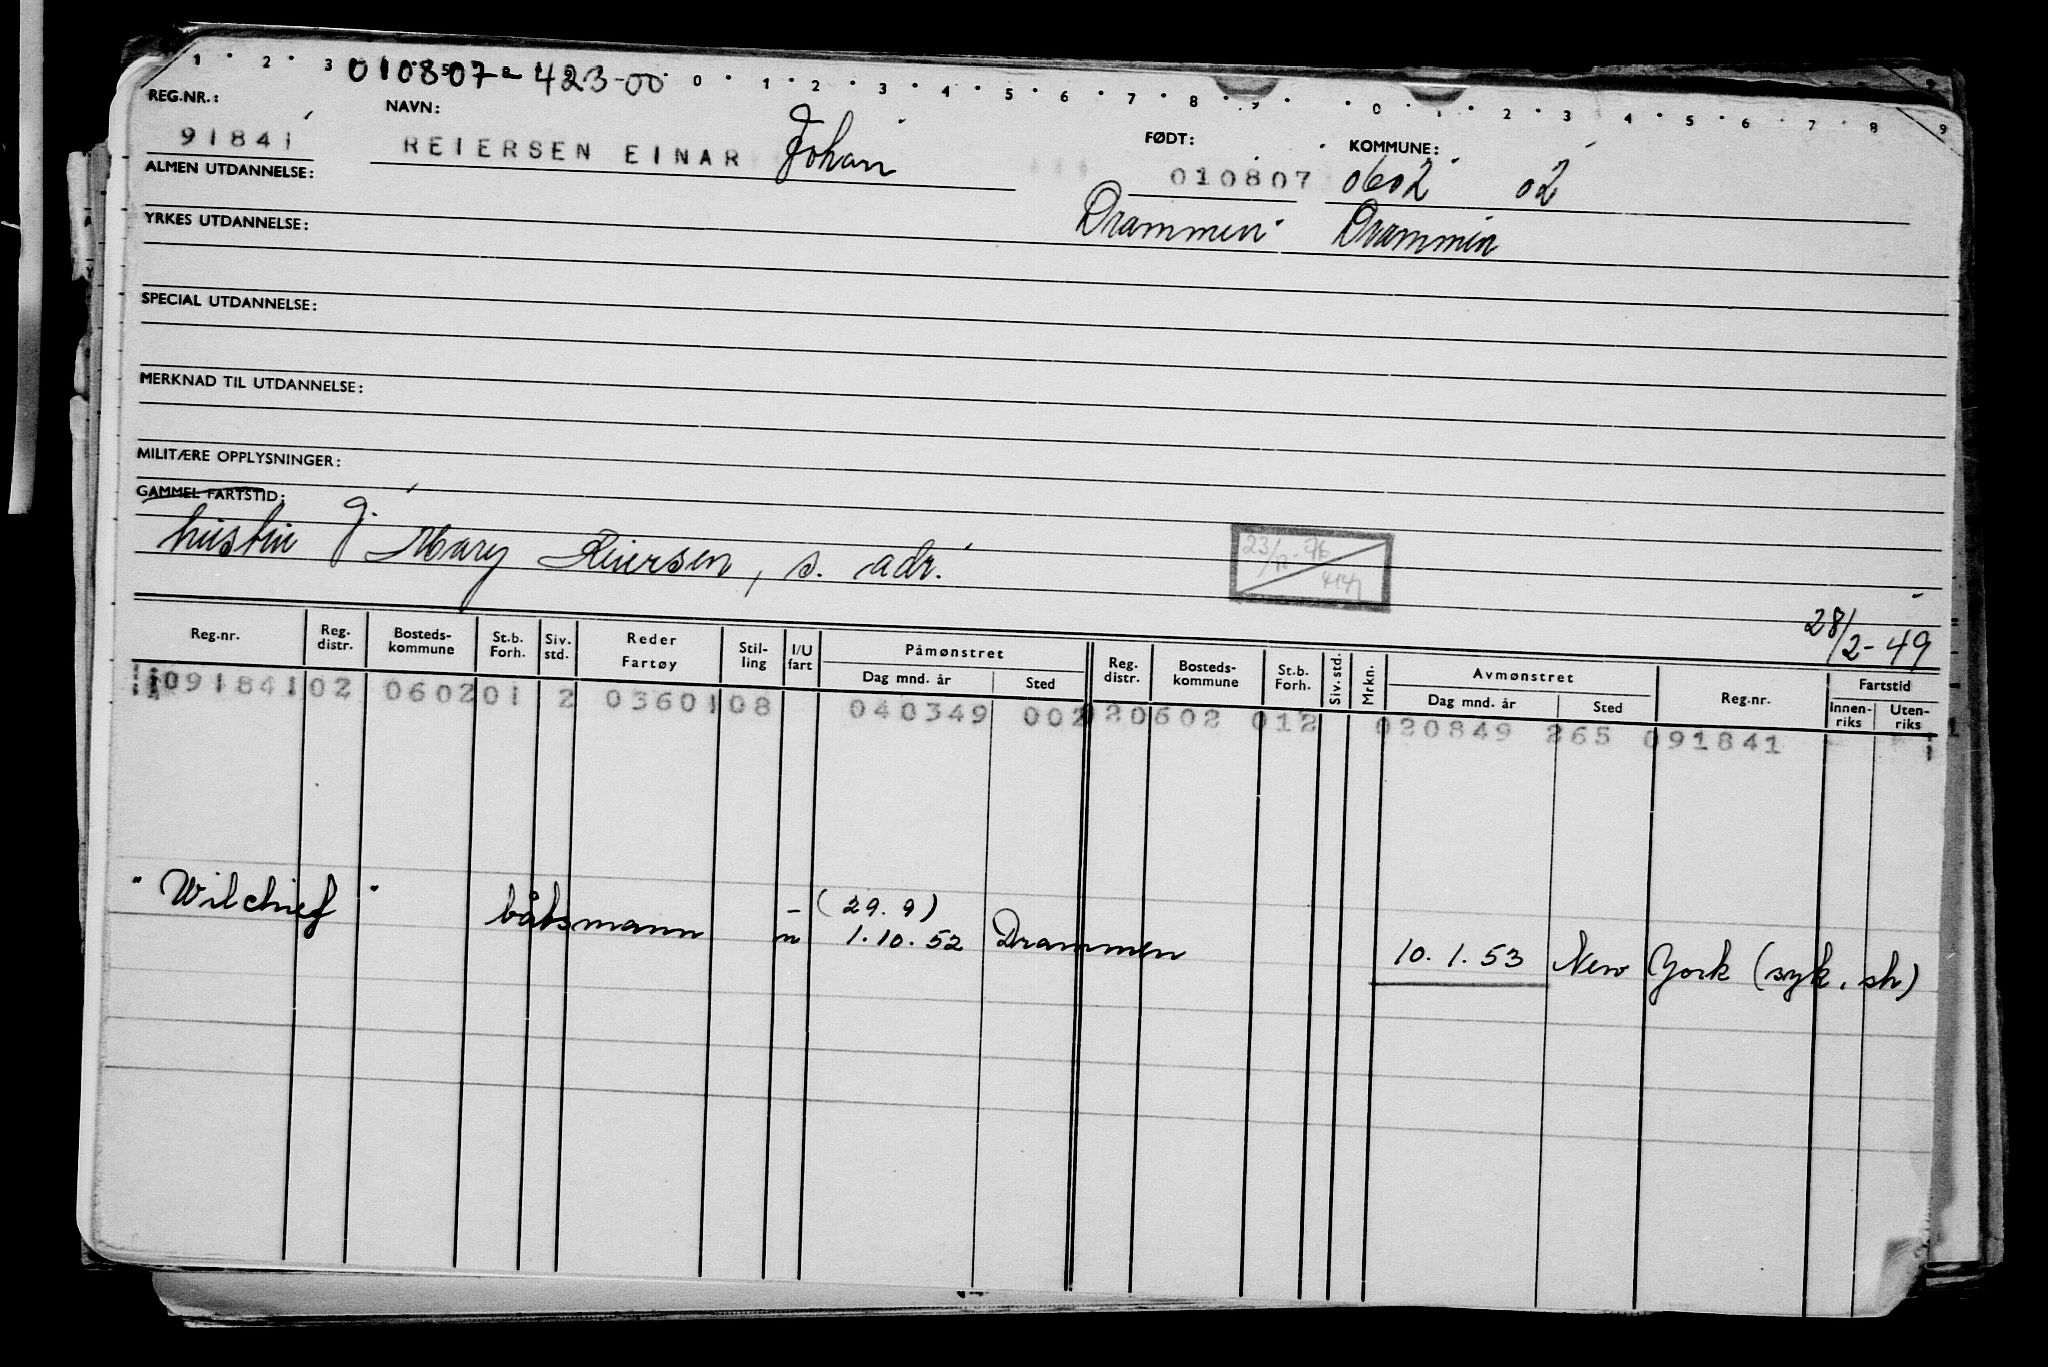 1 2 3 0 1 2 3 4 5 6 7 8 9 0 1 2 3 4 5 6 7 8 9
010807-423-00
REG.NR.: NAVN: FØDT: KOMMUNE:
91841 REIERSEN EINAR Johan 010807 0602 02
ALMEN UTDANNELSE:
Drammen Drammen
YRKES UTDANNELSE:
SPECIAL UTDANNELSE:
MERKNAD TIL UTDANNELSE:
MILITÆRE OPPLYSNINGER:
GAMMEL FARTSTID:
hustru g. Mary Reiersen, s. adr.
28/2-49
Reg.nr. Reg. distr. Bosteds-kommune St.b. Forh. Siv. std. Reder Fartøy Stil-ling I/U fart Påmønstret Dag mnd. år Sted Reg. distr. Bosteds-kommune St.b. Forh. Siv. std. Mrkn. Avmønstret Dag mnd. år Sted Reg.nr. Fartstid Innen-riks Uten-riks
091841 02 0602 01 2 0360108 040349 002 020602 012 020849 265 091841
"Wilchief" båtsmann - (29.9)
1.10.52 Drammen 10.1.53 New York (syk. sh)